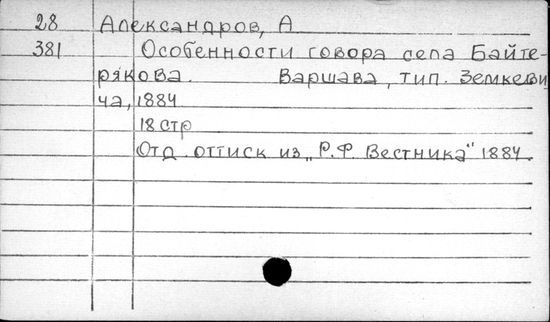 28 Александров, А
381 Особенности говора села Байте-
рякова. Варшава, тип. Земкеви
ча, 1884
18 стр
Отд. оттиск из „Р.Ф. Вестника" 1884.